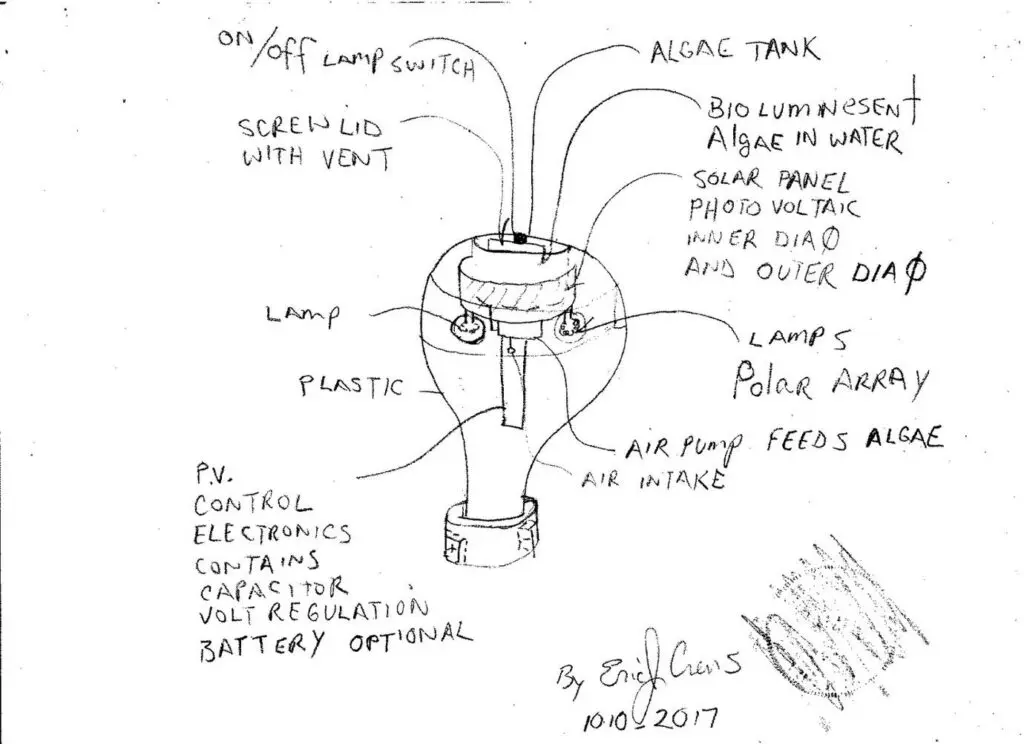 ON/OFF LAMP SWITCH
ALGAE TANK
SCREW LID
WITH VENT
BIOLUMINESENT
ALGAE IN WATER
SOLAR PANEL
PHOTO VOLTAIC
INNER DIA Ø
AND OUTER DIA Ø
LAMP
LAMPS
POLAR ARRAY
PLASTIC
AIR PUMP FEEDS ALGAE
AIR INTAKE
P.V.
CONTROL
ELECTRONICS
CONTAINS
CAPACITOR
VOLT REGULATION
BATTERY OPTIONAL
+
By Eric J
1010-2017